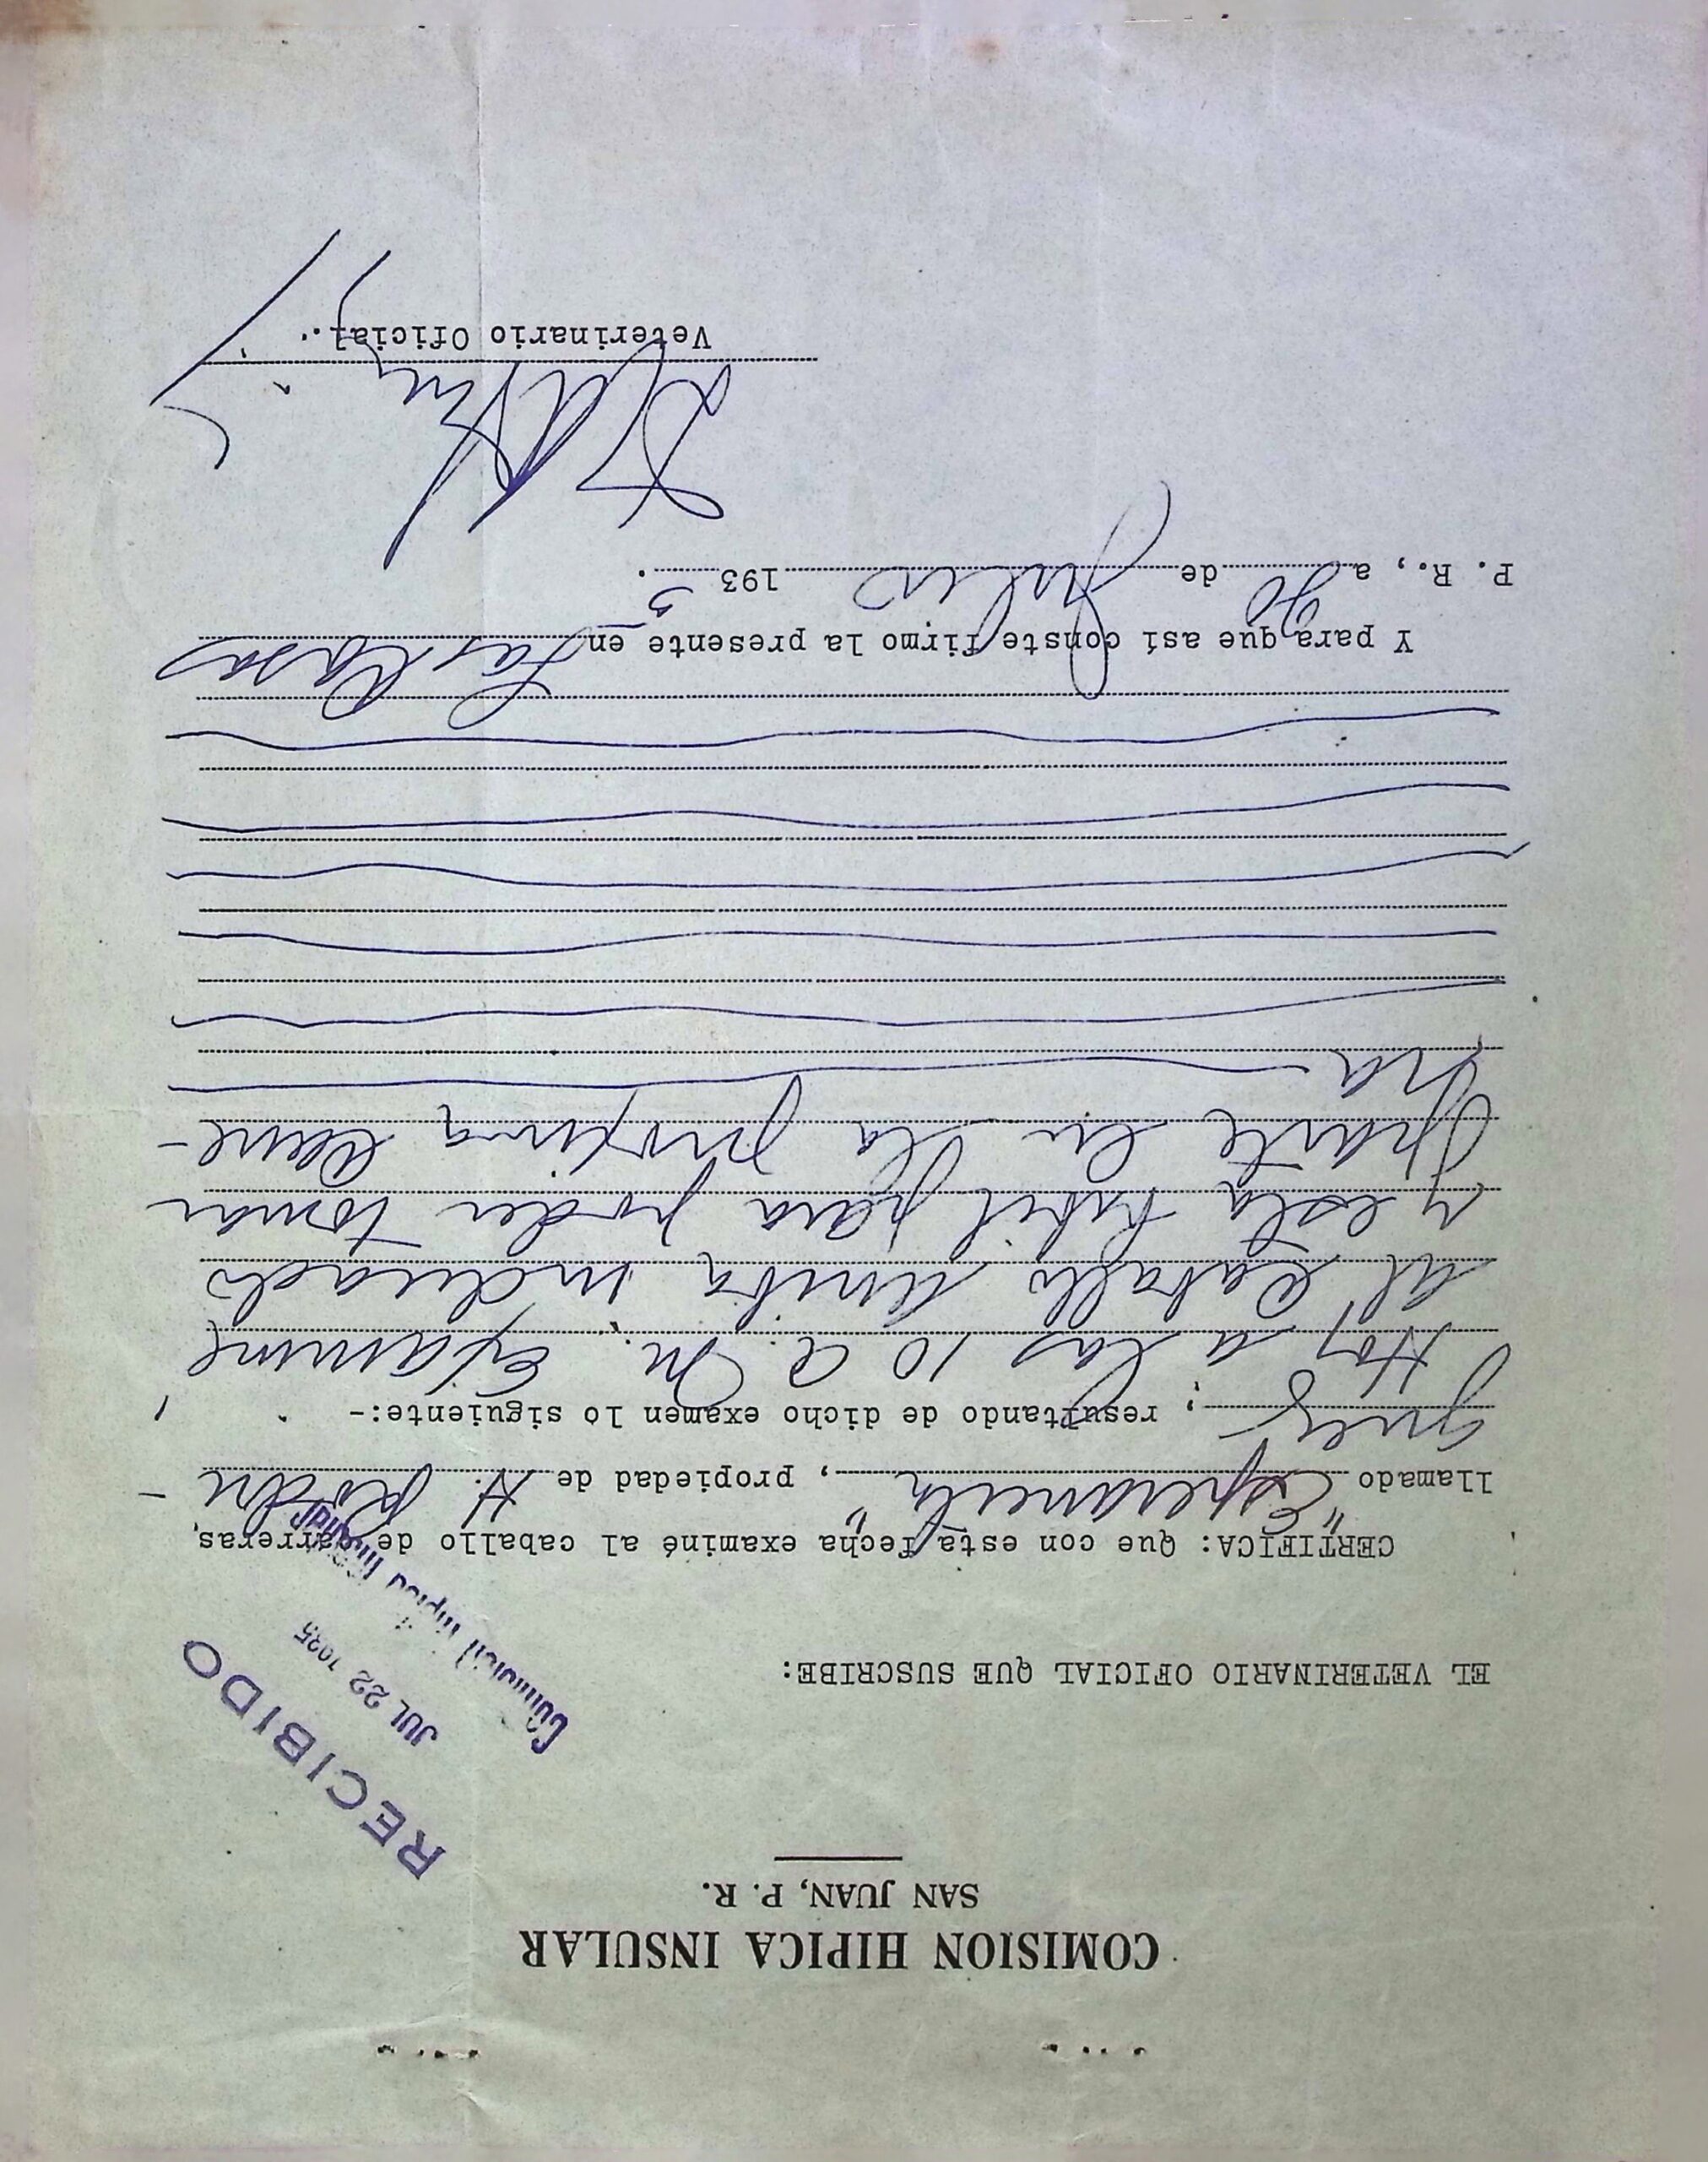 COMISION HIPICA INSULAR
SAN JUAN, P. R.
RECIBIDO
JUL 22 1935
Comision Hipica Insular
EL VETERINARIO OFICIAL QUE SUSCRIBE:
CERTIFICA: Que con esta fecha examiné al caballo de carreras,
llamado "Esperancita", propiedad de H. Rodri-
guez; resultando de dicho examen lo siguiente:-
Hoy a las 10 A. M. Examine
al caballo arriba indicado
y esta habil para poder tomar
parte en la proxima carre-
ra
Y para que así conste firmo la presente en Las Casas
P. R., a 20 de Julio 1935.
Veterinario Oficial.